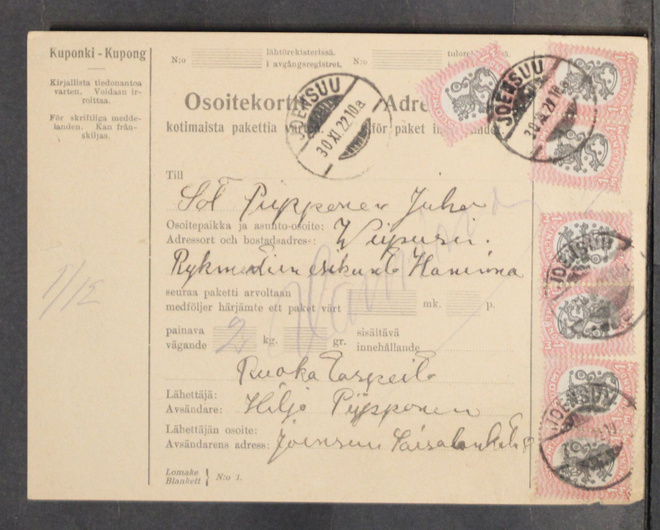 Kuponki - Kupong
Kirjallista tiedonantoa
varten. Voidaan ir-
roittaa.
För skriftliga medde-
landen. Kan från-
skiljas.
N:o lähtörekisterissä.
i avgångsregistret.
N:o
Osoitekortti Adre
kotimaista pakettia varten. för paket inom landet
JOENSUU
30.XI.22.10a
JOENSUU
Till
Sot Piipponen Juho
Osoitepaikka ja asunto-osoite: Wiipurin
Adressort och bostadsadress:
Rykmentin esikunta Hamina
seuraa paketti arvoltaan
medföljer härjämte ett paket värt mk. p.
painava
vägande 2 kg. gr. sisältävä
innehållande
Ruoka
Lähettäjä:
Avsändare: Hilja Piipponen
Lähettäjän osoite:
Avsändarens adress: Joensuu
Lomake
Blankett N:o 1.
JOENSUU
JOENSUU